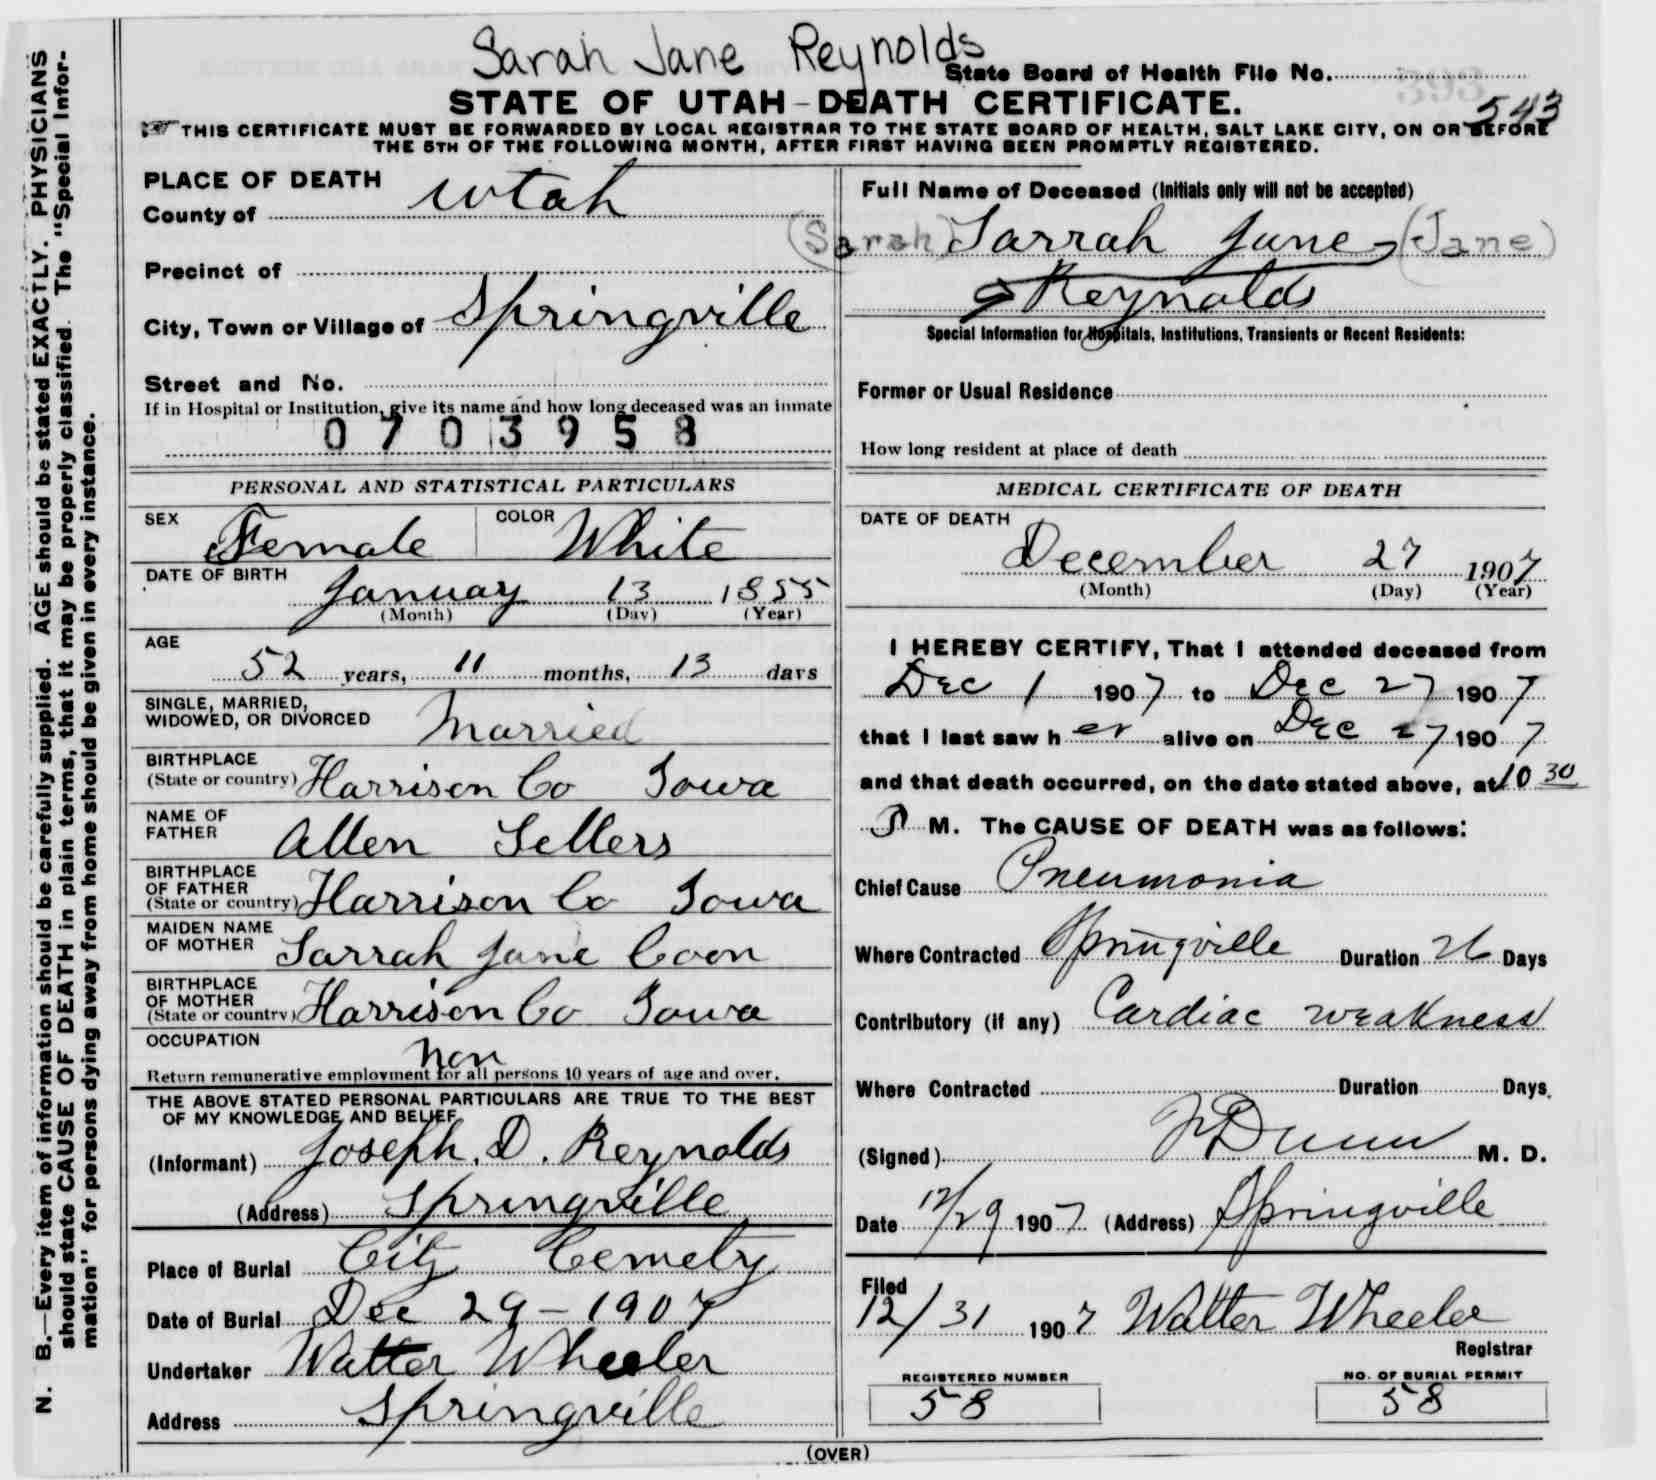 Sarah Jane Reynolds
State Board of Health File No.
593
543
STATE OF UTAH-DEATH CERTIFICATE.
THIS CERTIFICATE MUST BE FORWARDED BY LOCAL REGISTRAR TO THE STATE BOARD OF HEALTH, SALT LAKE CITY, ON OR BEFORE
THE 5TH OF THE FOLLOWING MONTH, AFTER FIRST HAVING BEEN PROMPTLY REGISTERED.
N. B.—Every item of information should be carefully supplied. AGE should be stated EXACTLY. PHYSICIANS
should state CAUSE OF DEATH in plain terms, that it may be properly classified. The "Special Infor-
mation" for persons dying away from home should be given in every instance.
PLACE OF DEATH
County of Utah
Precinct of
City, Town or Village of Springville
Street and No.
If in Hospital or Institution, give its name and how long deceased was an inmate
0703958
Full Name of Deceased (Initials only will not be accepted)
(Sarah) Sarrah Jane (Jane)
Reynolds
Special Information for Hospitals, Institutions, Transients or Recent Residents:
Former or Usual Residence
How long resident at place of death
PERSONAL AND STATISTICAL PARTICULARS
SEX Female COLOR White
DATE OF BIRTH
January 13 1855
(Month) (Day) (Year)
AGE
52 years, 11 months, 13 days
SINGLE, MARRIED,
WIDOWED, OR DIVORCED Married
BIRTHPLACE
(State or country) Harrison Co Iowa
NAME OF
FATHER Allen Sellers
BIRTHPLACE
OF FATHER
(State or country) Harrison Co Iowa
MAIDEN NAME
OF MOTHER Sarrah Jane Coon
BIRTHPLACE
OF MOTHER
(State or country) Harrison Co Iowa
OCCUPATION
non
Return remunerative employment for all persons 10 years of age and over.
THE ABOVE STATED PERSONAL PARTICULARS ARE TRUE TO THE BEST
OF MY KNOWLEDGE AND BELIEF
(Informant) Joseph. D. Reynolds
(Address) Springville
Place of Burial City Cemety
Date of Burial Dec 29 - 1907
Undertaker Walter Wheeler
Address Springville
MEDICAL CERTIFICATE OF DEATH
DATE OF DEATH
December 27 1907
(Month) (Day) (Year)
I HEREBY CERTIFY, That I attended deceased from
Dec 1 1907 to Dec 27 1907
that I last saw her alive on Dec 27 1907
and that death occurred, on the date stated above, at 10 30
P M. The CAUSE OF DEATH was as follows:
Chief Cause Pneumonia
Where Contracted Springville Duration 26 Days
Contributory (if any) Cardiac weakness
Where Contracted Duration Days.
(Signed) Dunn M. D.
Date 12/29 1907 (Address) Springville
Filed
12/31 1907 Walter Wheeler
Registrar
REGISTERED NUMBER
58
NO. OF BURIAL PERMIT
58
(OVER)